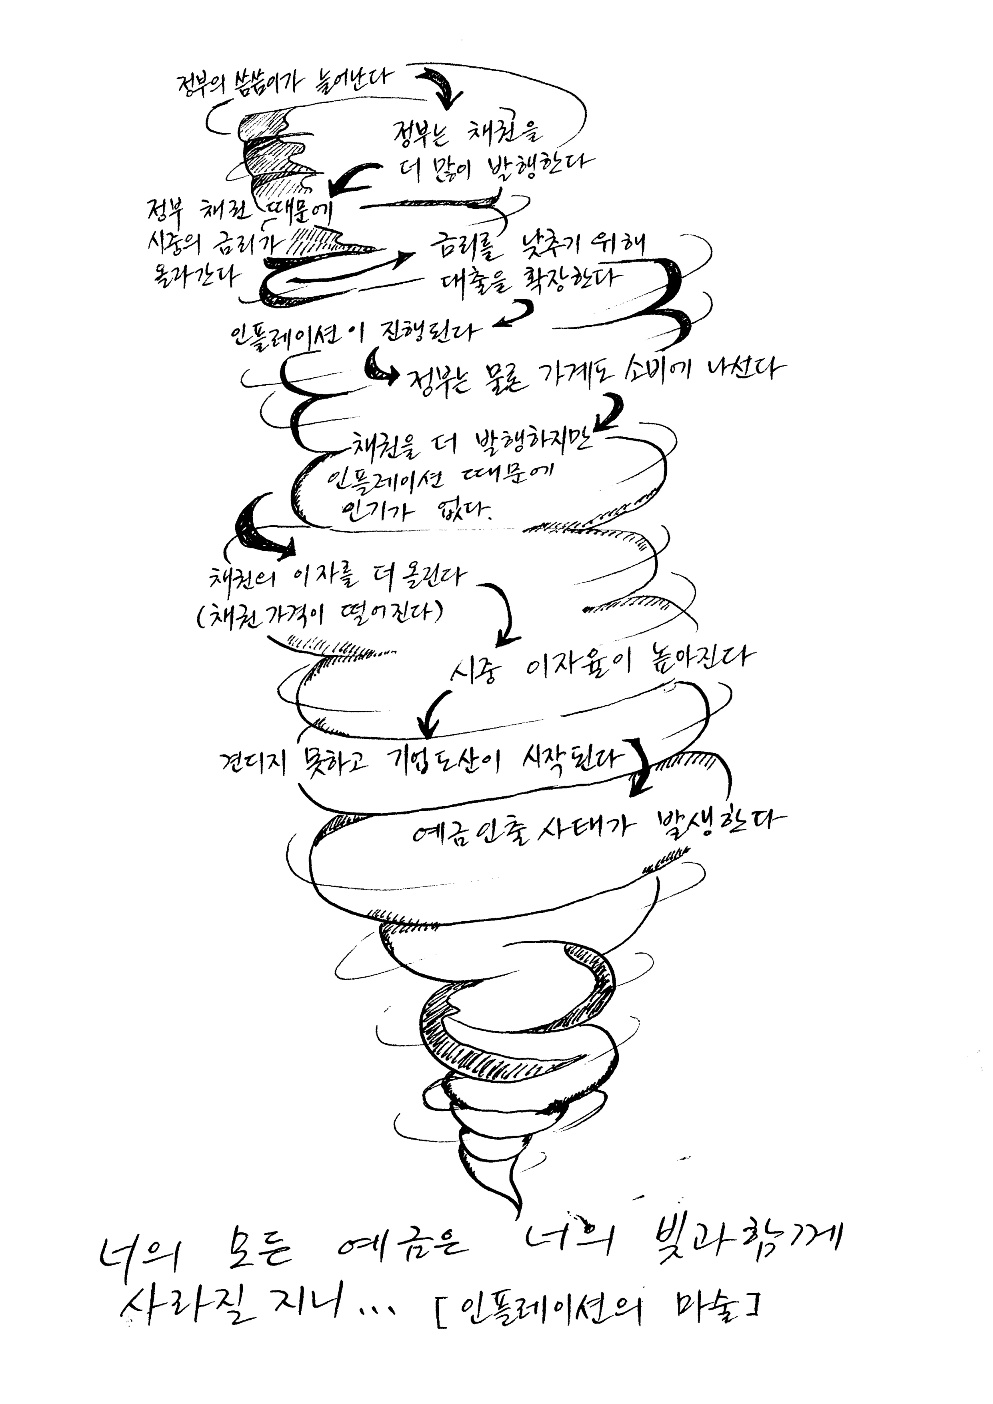 정부의 씀씀이가 늘어난다
정부는 채권을
더 많이 발행한다
정부 채권 때문에
시중의 금리가
올라간다
금리를 낮추기 위해
대출을 확장한다
인플레이션이 진행된다
정부는 물론 가계도 소비에 나선다
채권을 더 발행하지만
인플레이션 때문에
인기가 없다.
채권의 이자를 더 올린다
(채권가격이 떨어진다)
시중 이자율이 높아진다
견디지 못하고 기업도산이 시작된다
예금인출사태가 발생한다
너의 모든 예금은 너의 빚과함께
사라질지니... [인플레이션의 마술]